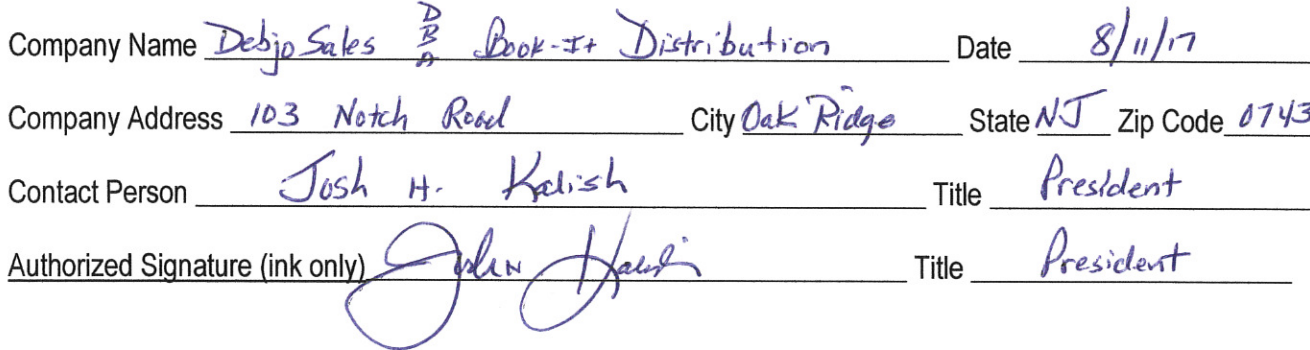 Company Name Debjo Sales DBA Book-It Distribution Date 8/11/17
Company Address 103 Notch Road City Oak Ridge State NJ Zip Code 0743
Contact Person Josh H. Kalish Title President
Authorized Signature (ink only) Title President